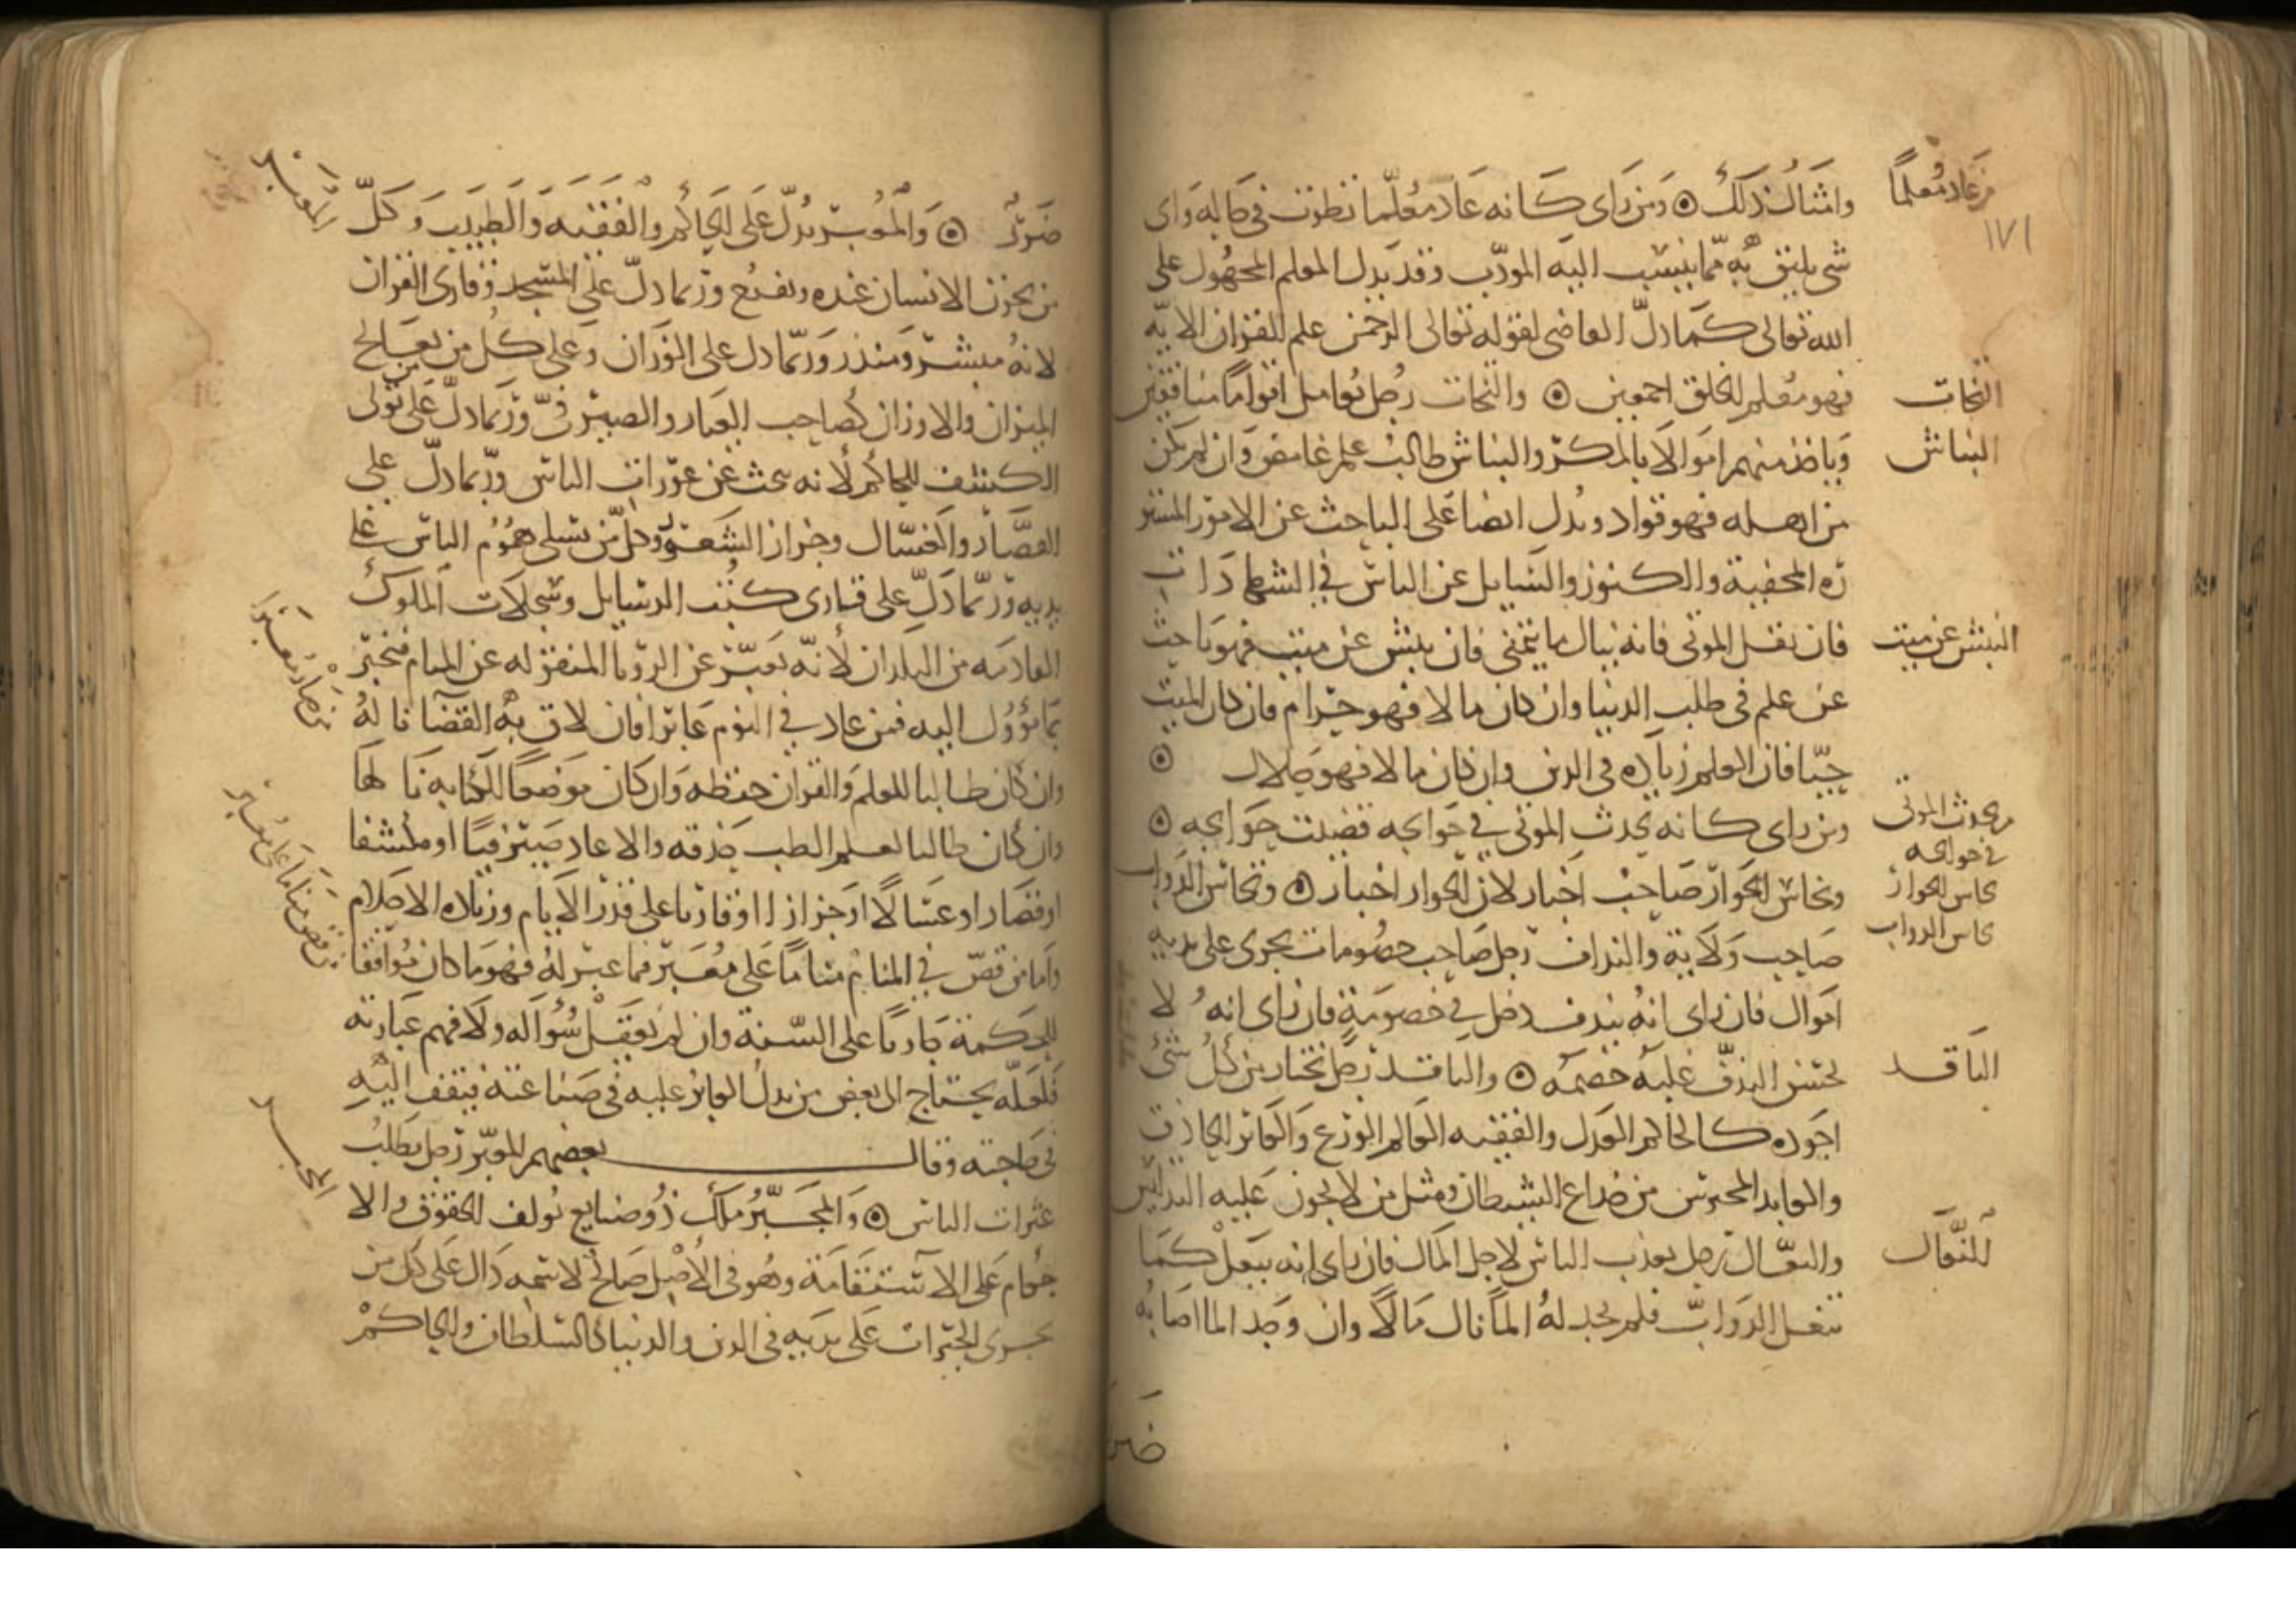 من عاد معلماً
١٧١
وامثال ذلك ۞ ومن راى كانه عاد معلّما نظرت في حاله واى
شى يليق به مما ينسب اليه المودّب وقد يدل المعلم المجهول على
الله تعالى كما دلّ القاضى لقوله تعالى الرحمن علم القران الايه
فهو معلم الخلق اجمعين ۞ والنحات رجل يعامل اقواما منافقين
النحات
وياخذ منهم اموالا بالمكر والنباش طالب علم غامض وان لم يكن
النباش
من اهله فهو قواد ويدل ايضا على الباحث عن الامور المستتر
ره المخفية والكنوز والسايل عن الناس في الشهادات
فان نقل الموتى فانه ينال ما يتمنى فان نبش عن ميت فهو باحث
النبش عن ميت
عن علم فى طلب الدنيا وان كان مالا فهو حرام فان كان الميت
حيّا فان العلم زياده فى الدين وان كان مالا فهو حلال ۞
ومن راى كانه يحدث الموتى في حوايجه قضيت حوايجه ۞
من يحدث الموتى
في حوايجه
ونخاس الجوار صاحب اخبار لان الجوار اخبار ۞ ونخاس الدواب
نخاس الجوار
صاحب ولاية والنداف رجل صاحب خصومات يجرى على يديه
نخاس الدواب
اموال فان راى انه يندف دخل في خصومة فان راى انه لا
يحسن الندف غلبه خصمه ۞ والناقد رجل يختار من كل شئ
الناقد
اجوده كالحاكم العدل والفقيه العالم الورع والعابر الحاذق
والعابد المحترس من خداع الشيطان ومثل من لا يجوز عليه التدليس
والنعّال رجل يعذب الناس لاجل المال فان راى انه ينعل كما
النعال
تنعل الدواب فلم يجد له الما نال مالا وان وجد الما اصابه
ضرر
ضرر ۞ والمعبر يدل على الحاكم والفقيه والطبيب وكلّ
المعبر
من يحزن الانسان عنده ويفزع وربما دلّ على المسجد وقارى القران
لانه مبشر ومنذر وربما دل على الوزان وعلى كل من يعالج
الميزان والاوزان كصاحب العيار والصيرفىّ وربما دلّ على من تولى
الكشف للحاكم لانه يبحث عن عورات الناس وربما دلّ على
القصّار والغسّال وجزاز الشعر وكل من يسلى هموم الناس على
يديه وربما دلّ على قارى كتب الرسايل وسجلات الملوك
القادمه من البلدان لانه يعبر عن الرويا المنقوله عن المنام فيخبر
بما تؤول اليه فمن عاد في النوم عابرا فان لاق به القضا ناله
من صار معبرا
وان كان طالبا للعلم والقران حفظه وان كان موضعا للكتابه نالها
وان كان طالبا لعلم الطب حذقه والا عاد صيرفيا او مكشفا
او قصارا او غسّالا او جزازا او قاريا على قدر الايام وزياده الاحلام
من قص مناما على معبر
واما من قصّ في المنام مناما على معبر فما عبر له فهو ما كان موافقا
للحكمة جاريا على السنة وان لم يعقل سؤاله ولا فهم عبارته
فلعله يحتاج الى بعض من يدل العابر عليه فى صناعته فيقف اليه
فى حاجته وقال بعضهم المعبر رجل يطلب
عثرات الناس ۞ والمجبّر ملك ذو صنايع يولف الحقوق والا
المجبر
حكام على الاستقامة وهو فى الاصل صالح لاسمه دال على كل من
يجرى الخيرات على يديه فى الدين والدنيا كالسلطان والحاكم